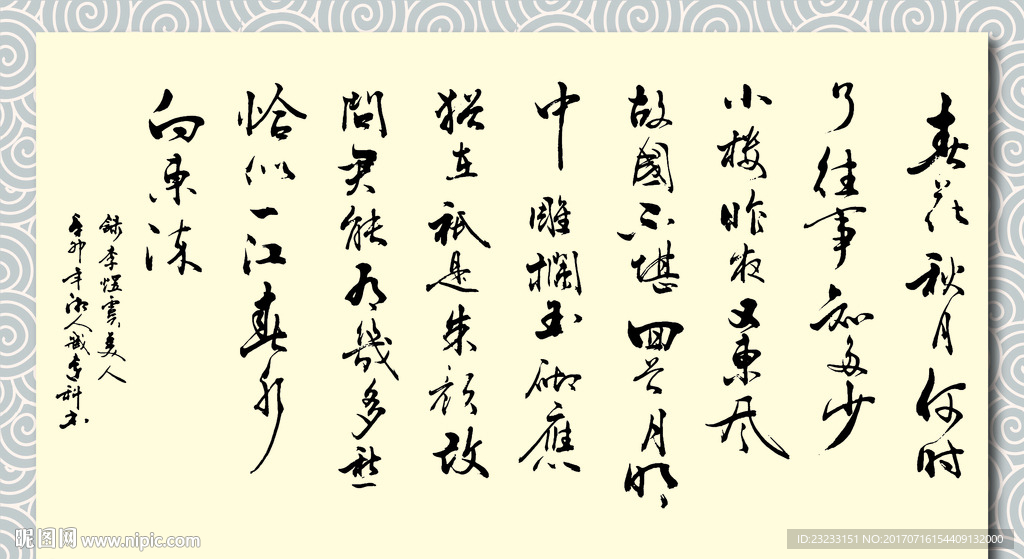 春花秋月何时
了往事知多少
小楼昨夜又東风
故國不堪回首月明
中雕欄玉砌應
猶在祇是朱顔改
問君能有幾多愁
恰似一江春水
向東流
錄李煜虞美人
辛卯年 人 科书
昵图网 www.nipic.com
ID:23233151 NO:20170716154409132000